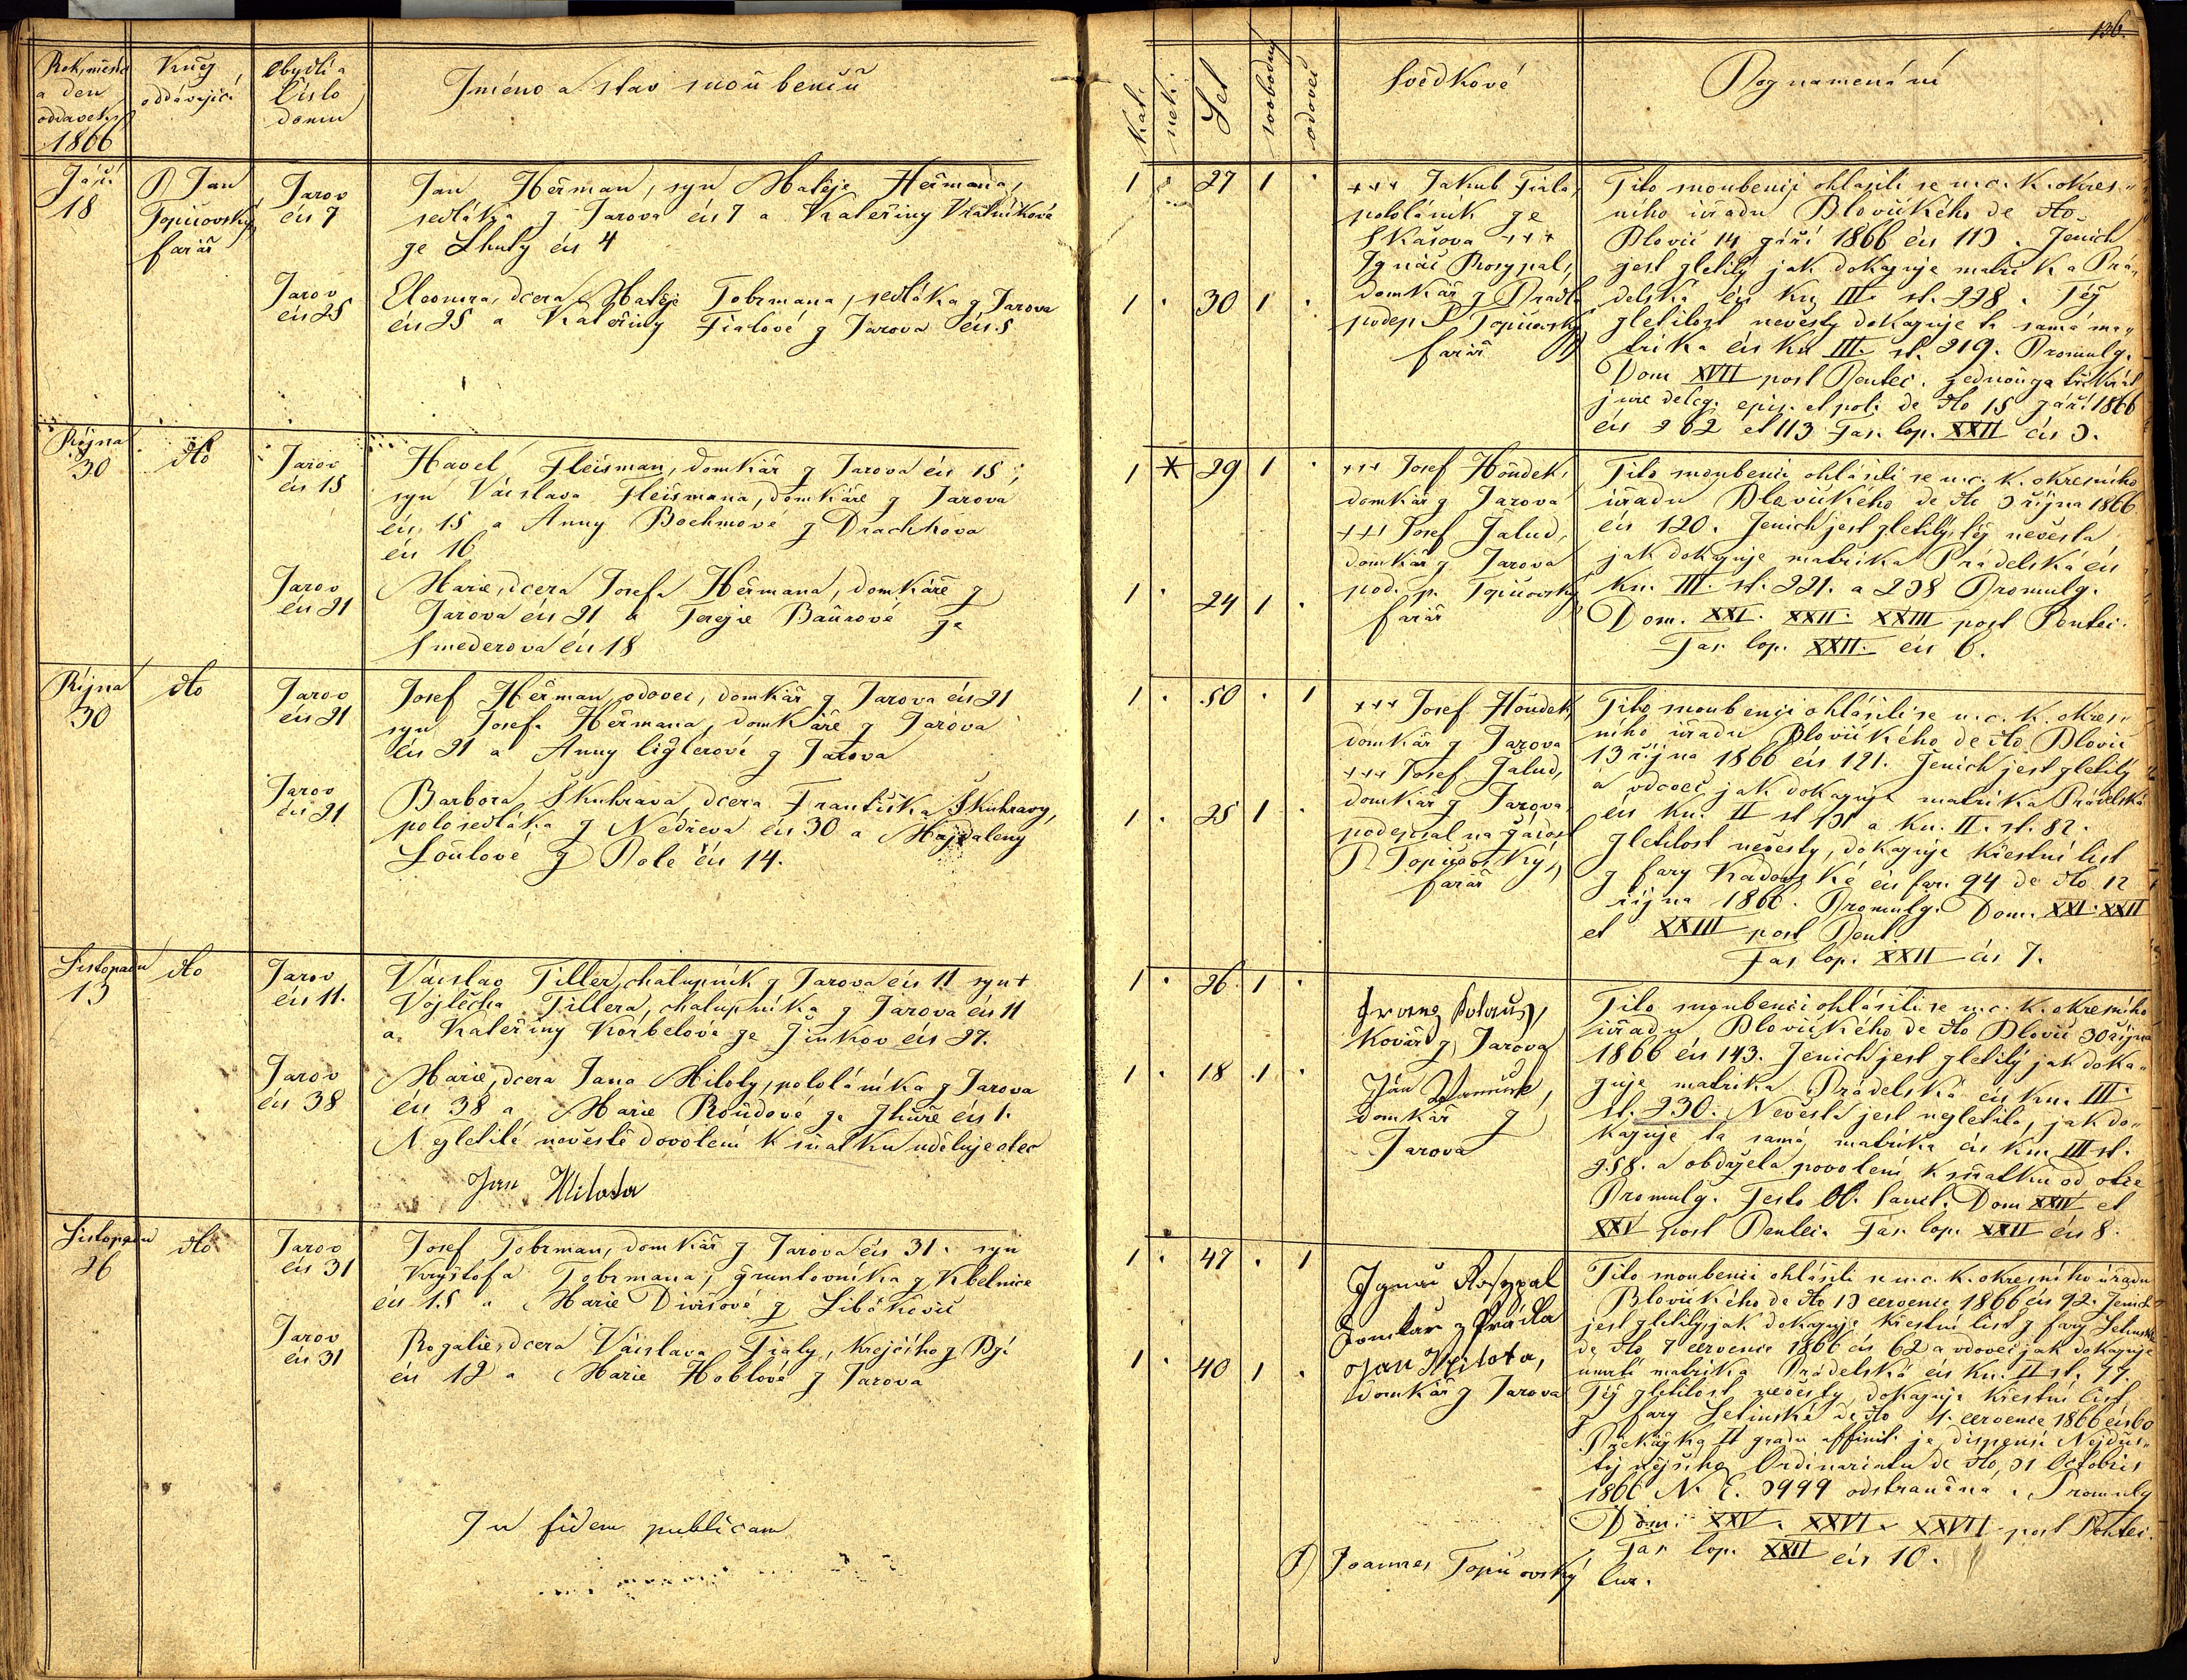 136.
Rok, měsíc
a den
oddavek
1866
Kněz
oddávající
Obydlí a
Číslo
domu
Jméno a stav snoubenců
Kat.
nek.
Let
svobodný
vdovec
Svědkové
Poznamenání
Září
18
P. Jan
Topičovský
farář
Jarov
čís 7
Jan Heřman, syn Matěje Heřmana,
sedláka z Jarova čís 7 a Kateřiny
ze Lhuty čís 4
Jarov
čís 25
Eleonora, dcera Matěje Tobrmana, sedláka z Jarova
čís 25 a Kateřiny Fialové z Jarova čís 5
1 27 1
1 30 1
+++ Jakub Fiala,
pololáník ze
Skašova +++
Ignác Rosypal,
domkář z Prádl
podep. P. Topičovský
farář
Tito snoubenci ohlásili se u c. k. okres-
ního úřadu Blovického de dto
Blovic 14 září 1866 čís 113. Ženich
jest zletilý jak dokazuje matrika Prá-
delská čís kn III st. 228. Též
zletilost nevěsty dokazuje ta samá ma-
trika čís kn III. st. 219. Promulg.
Dom XVII post Pentec. jednou za třikrát
jure deleg. epis. et pol. de dto 15 září 1866
čís 262 et 113 Fas. cop. XXII čís 3.
Října
30
dto
Jarov
čís 15
Havel Fleisman, domkář z Jarova čís 15,
syn Václava Fleismana, domkáře z Jarova
čís 15 a Anny Boehmové z Drachkova
čís 16
Jarov
čís 21
Marie, dcera Josefa Heřmana, domkáře z
Jarova čís 21 a Terezie Baurové ze
Smederova čís 18
1 * 29 1
1 24 1
+++ Josef Houdek,
domkář z Jarova
+++ Josef Žalud,
domkář z Jarova
pod. p. Topičovský
farář
Tito snoubenci ohlásili se u c. k. okresního
úřadu Blovického de dto 3 října 1866
čís 120. Ženich jest zletilý, též nevěsta
jak dokazuje matrika Prádelská čís
kn. III. st. 221. a 238 Promulg.
Dom. XXI. XXII. XXIII post Pentec.
Fas. cop. XXII. čís 6.
Října
30
dto
Jarov
čís 21
Josef Heřman, vdovec, domkář z Jarova čís 21
syn Josefa Heřmana, domkáře z Jarova
čís 21 a Anny Ciglerové z Jarova
Jarov
čís 21
Barbora Škuhravá, dcera Františka Škuhravý,
polosedláka z čís 30 a Majdaleny
Loulové z Pole čís 14.
1 50 1
1 25 1
+++ Josef Houdek,
domkář z Jarova
+++ Josef Žalud,
domkář z Jarova
podepsal na žádost
P. Topičovský,
farář
Tito snoubenci ohlásili se u c. k. okres-
ního úřadu Blovického de dto Blovic
13 října 1866 čís 121. Ženich jest zletilý
a vdovec, jak dokazuje matrika Prádelská
čís kn. II st 131 a kn. II. st. 82.
Zletilost nevěsty, dokazuje křestní list
z fary Kadovské čís far. 94 de dto 12
října 1866. Promulg. Dom. XXI. XXII
et XXIII post Pent.
Fas cop. XXII čís 7.
Listopadu
13
dto
Jarov
čís 11.
Václav Tiller, chalupník z Jarova čís 11 syn +
Vojtěcha Tillera, chalupníka z Jarova čís 11
a Kateřiny Korbelové ze Žinkov čís 27.
Jarov
čís 38
Marie, dcera Jana Miloty, pololáníka z Jarova
čís 38 a Marie Roudové ze Zhůře čís 1.
Nezletilé nevěstě dovolení k sňatku uděluje otec
Jan Milota
1 26 1
1 18 1
Kovář z Jarova
Jan
domkář z
Jarova
Tito snoubenci ohlásili se u c. k. okresního
úřadu Blovického de dto Blovic 30 října
1866 čís 143. Ženich jest zletilý jak doka-
zuje matrika Prádelská čís kn. III.
st. 230. Nevěsta jest nezletilá, jak do-
kazuje ta samá matrika čís kn. III st.
258. a obdržela povolení k sňatku od otce
Promulg. Festo OO. Sanct. Dom XXIV et
XXV post Pentec. Fas. cop. XXII čís 8.
Listopadu
26
dto
Jarov
čís 31
Josef Tobrman, domkář z Jarova čís 31. syn
Kryštofa Tobrmana, gruntovníka z Kbelnice
čís 15 a Marie Divišové z Libákovic
Jarov
čís 31
Rozalie, dcera Václava Fialy, krejčího z
čís 12 a Marie Hoblové z Jarova
1 47 1
1 40 1
Ignác Rosypal
Domkář z Prádla
Jan Milota,
domkář z Jarova
Tito snoubenci ohlásili se u c. k. okresního úřadu
Blovického de dto 13 července 1866 čís 92. Ženich
jest zletilý, jak dokazuje křestní list z fary Letinské
de dto 7 července 1866 čís 62 a vdovec jak dokazuje
úmrtí matrika Prádelská čís kn. II st. 77.
Též zletilost nevěsty, dokazuje křestní list
z fary Letinské de dto 4. července 1866 čís 60
Překážka II gradu affinit. je dispensí Nejdůs-
tojnějšího Ordinariatu de dto, 31 Octobris
1866 N. E. 3999 odstraněna. Promulg
Dom. XXV. XXVI. XXVII post Pentec.
Fas. cop. XXII čís 10.
In fidem publicam
P. Joannes Topičovský Cur.